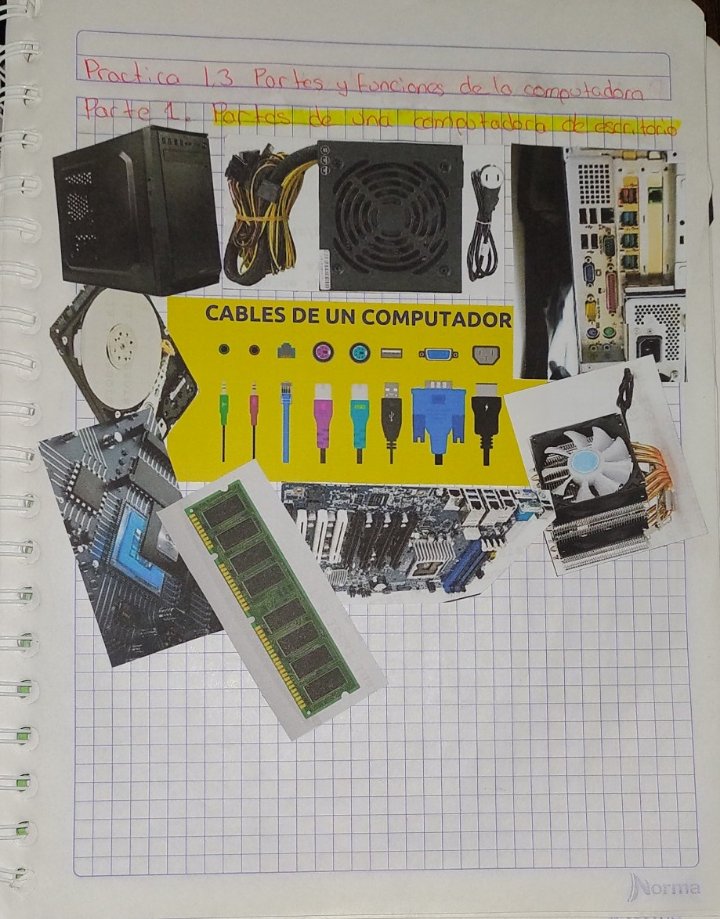 Practica 1.3 Partes y funciones de la computadora
Parte 1. Partes de una computadora de escritorio
CABLES DE UN COMPUTADOR
Norma